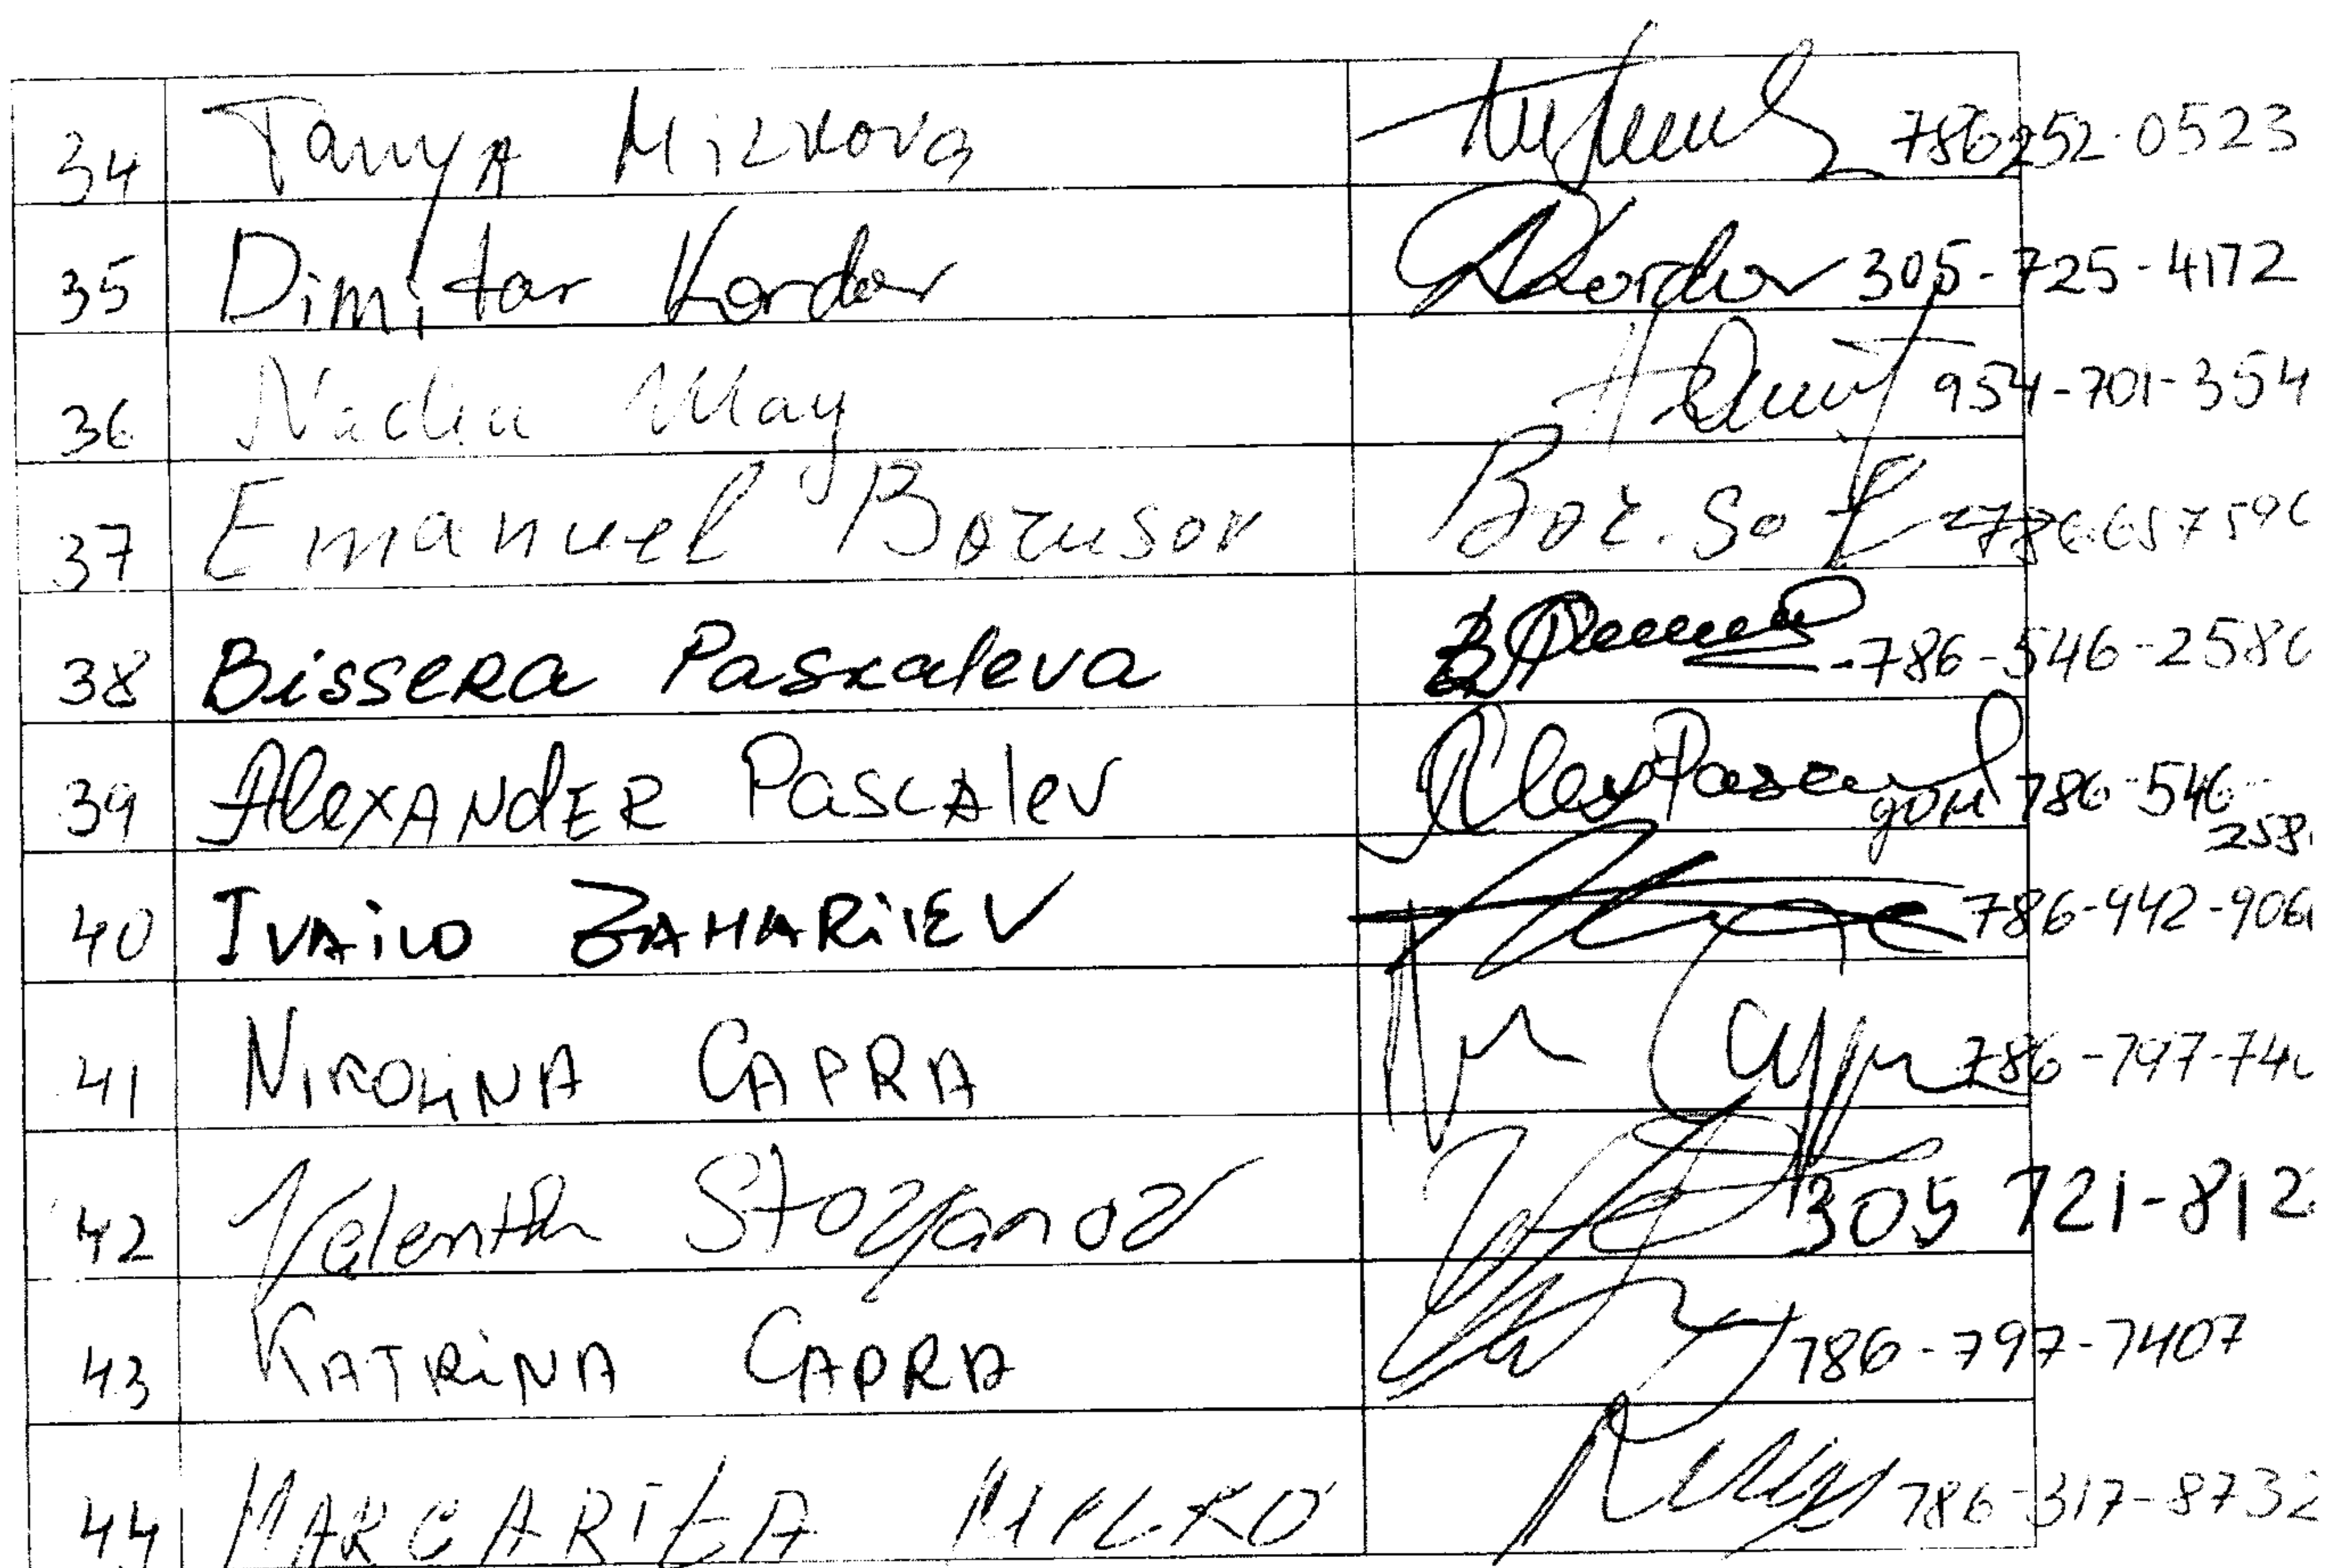 34 Tanya Mizkova 786 252-0523
35 Dimitar Kordov DKordov 305-725-4172
36 Nadia May 954-701-354
37 Emanuel
38 Bissera Paskaleva 786-546-258
39 AlexANdER PascAlev дом 786-546-
258
40 IVAiLO ZAHARiEV 786-942-906
41 NIKOLINA CAPRA 786-797-74
42 Valentin Stoyanov 305 721-812
43 KATRiNA CAPRA 786-797-7407
44 MARGARITA 786-317-8732